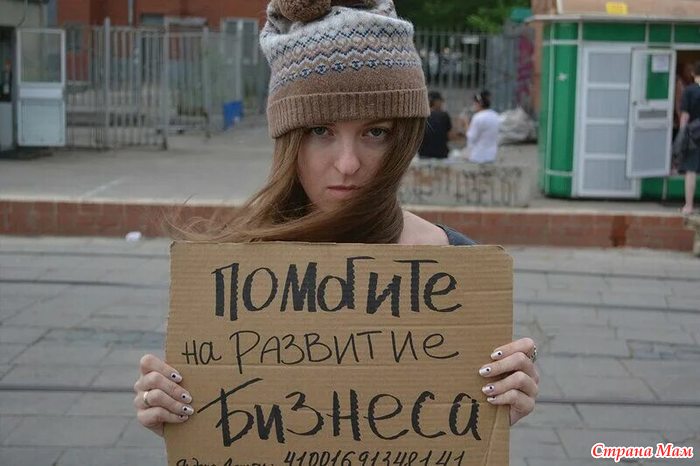 ПОМОГИТЕ
НА РАЗВИТИЕ
БИЗНЕСА
41001691348141
Страна Мам